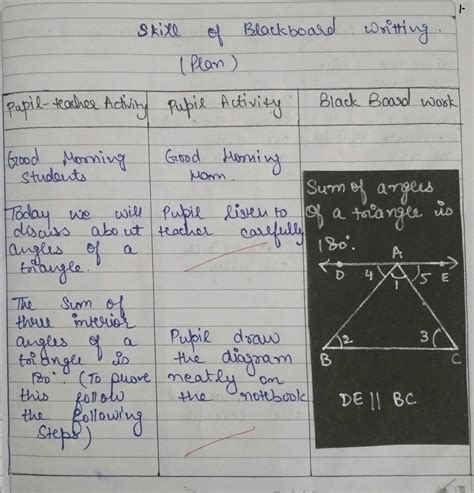 1.
Skill of Blackboard Writting.
(Plan)
Pupil-teacher Activity
Pupil Activity
Black Board Work
Good Morning
Students
Good Morning
Mam.
Today we will
discuss about
angles of a
triangle.
Pupil listen to
teacher carefully
The Sum of
three interior
angles of a
triangle is
180°. (To prove
this follow
the following
Steps)
Pupil draw
the diagram
neatly on
the notebook
Sum of angles
of a triangle is
180°.
A
D 4 1 5 E
B 2 3 C
DE || BC